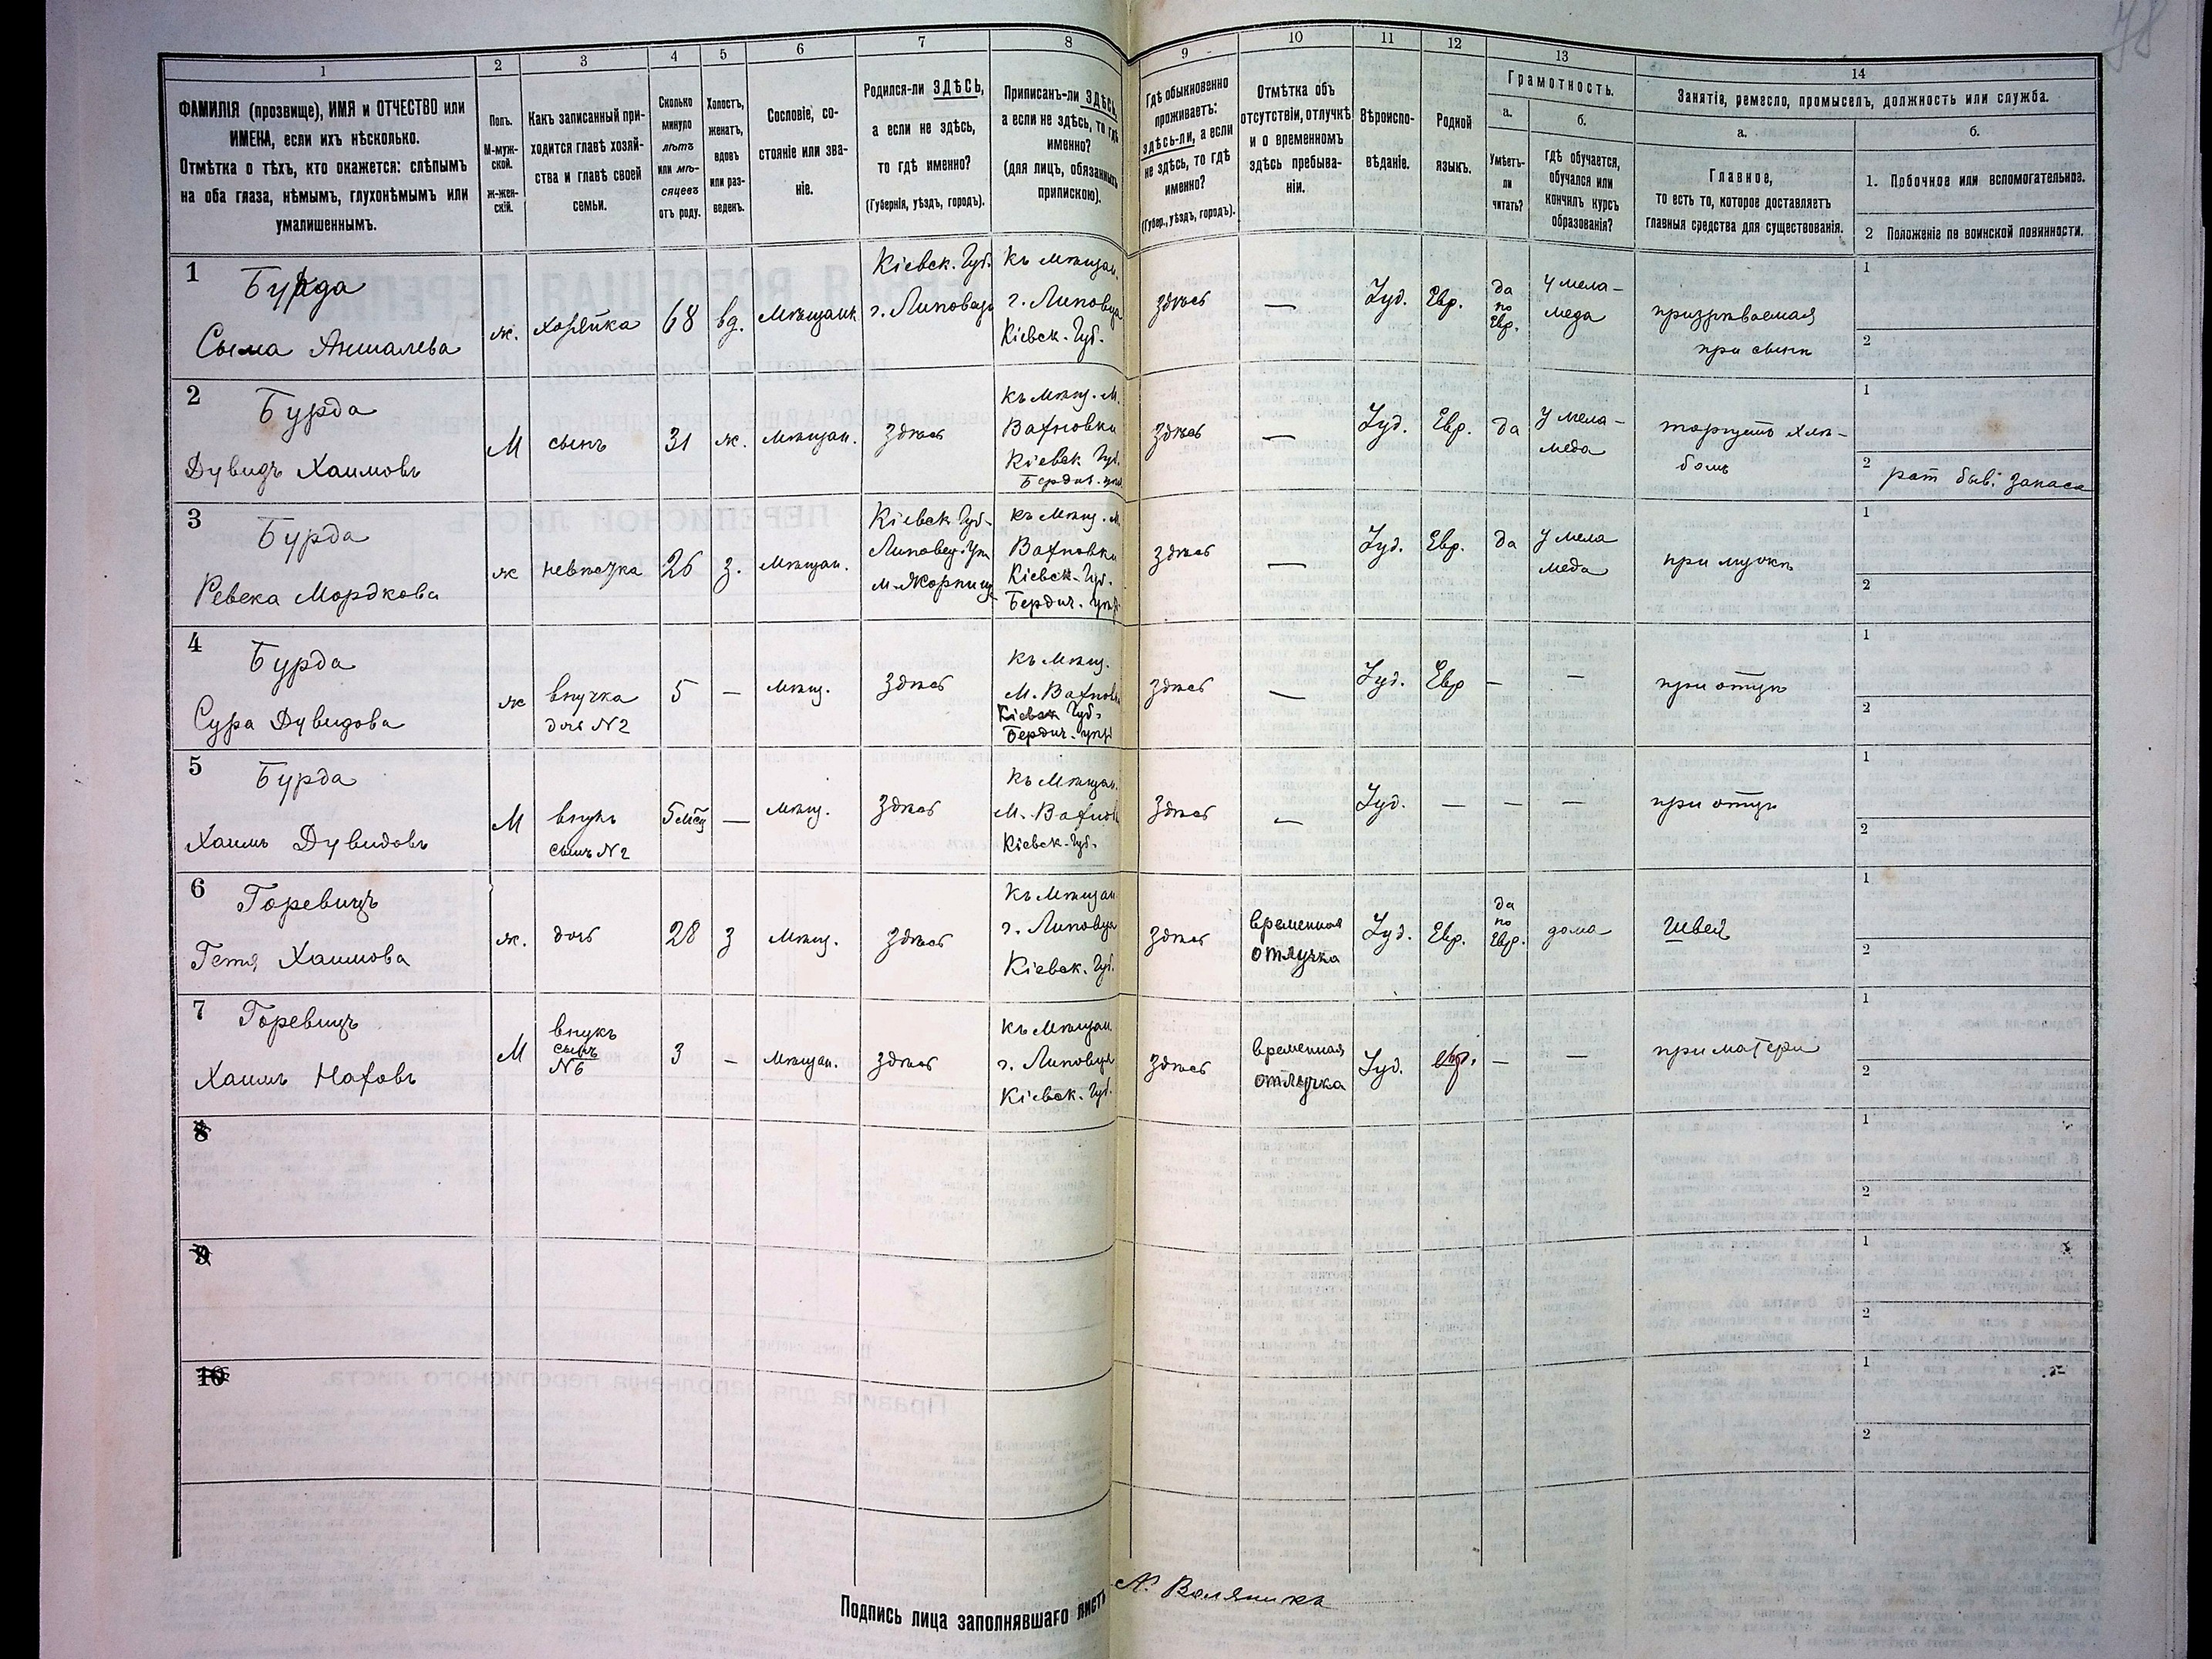 78
1
2
3
4
5
6
7
8
9
10
11
12
13
14
ФАМИЛІЯ (прозвище), ИМЯ и ОТЧЕСТВО или
ИМЕНА, если ихъ нѣсколько.
Отмѣтка о тѣхъ, кто окажется: слѣпымъ
на оба глаза, нѣмымъ, глухонѣмымъ или
умалишеннымъ.
Полъ.
М-муж-
ской.
Ж-жен-
скій.
Какъ записанный при-
ходится главѣ хозяй-
ства и главѣ своей
семьи.
Сколько
минуло
лѣтъ
или мѣ-
сяцевъ
отъ роду.
Холостъ,
женатъ,
вдовъ
или раз-
веденъ.
Сословіе, со-
стояніе или зва-
ніе.
Родился-ли ЗДѢСЬ,
а если не здѣсь,
то гдѣ именно?
(Губернія, уѣздъ, городъ).
Приписанъ-ли ЗДѢСЬ,
а если не здѣсь, то гдѣ
именно?
(для лицъ, обязанныхъ
припискою).
Гдѣ обыкновенно
проживаетъ:
здѣсь-ли, а если
не здѣсь, то гдѣ
именно?
(Губер., уѣздъ, городъ).
Отмѣтка объ
отсутствіи, отлучкѣ
и о временномъ
здѣсь пребыва-
ніи.
Вѣроиспо-
вѣданіе.
Родной
языкъ.
Грамотность.
а.
Умѣетъ-
ли
читать?
б.
гдѣ обучается,
обучался или
кончилъ курсъ
образованія?
Занятіе, ремесло, промыселъ, должность или служба.
а.
Главное,
то есть то, которое доставляетъ
главныя средства для существованія.
б.
1. Побочное или вспомогательное.
2 Положеніе по воинской повинности.
1
Бурда
Сыма Аншалева
ж.
хозяйка
68
вд.
Мѣщанк
Кіевск. Губ.
г. Липовецъ
къ мѣщан.
г. Липовца
Кіевск. Губ.
здѣсь
—
Іуд.
Евр.
да
по
Евр.
у мела-
меда
призрѣваемая
при сынѣ
1
2
2
Бурда
Дувидъ Хаимовъ
М
сынъ
31
ж.
мѣщан.
здѣсь
къ мѣщ. м.
Вахновки
Кіевск Губ.
Бердич. уѣз
здѣсь
—
Іуд.
Евр.
да
у мела-
меда
торгуетъ хлѣ-
бомъ
1
2
рат быв. запаса
3
Бурда
Ревека Мордкова
ж
невѣстка
26
з.
мѣщан.
Кіевск Губ.
Липовец. уѣз
къ мѣщ. м.
Вахновки
Кіевск. Губ.
Бердич. уѣзд
здѣсь
—
Іуд.
Евр.
да
у мела
меда
при мужѣ
1
2
4
Бурда
Сура Дувидова
ж
внучка
дочь №2
5
—
мѣщ.
здѣсь
къ мѣщ.
М. Вахновки
Кіевск Губ.
Бердич. уѣзд
здѣсь
—
Іуд.
Евр
—
—
при отцѣ
1
2
5
Бурда
Хаимъ Дувидовъ
М
внукъ
сынъ №2
5 мѣс
—
мѣщ.
здѣсь
къ мѣщан.
М. Вахнов
Кіевск. Губ.
здѣсь
—
Іуд.
—
—
—
при отцѣ
1
2
6
Горевицъ
Гетя Хаимова
ж.
дочь
28
з
мѣщ.
здѣсь
къ мѣщан
г. Липовца
Кіевск. Губ.
здѣсь
временная
отлучка
Іуд.
Евр.
да
по
Евр.
дома
Швея
1
2
7
Горевицъ
Хаимъ Наховъ
М
внукъ
сынъ
№6
3
—
мѣщан.
здѣсь
къ мѣщан
г. Липовца
Кіевск. Губ.
здѣсь
временная
отлучка
Іуд.
евр.
—
—
при матери
1
2
8
1
2
9
1
2
10
1
2
Подпись лица заполнявшаго листъ